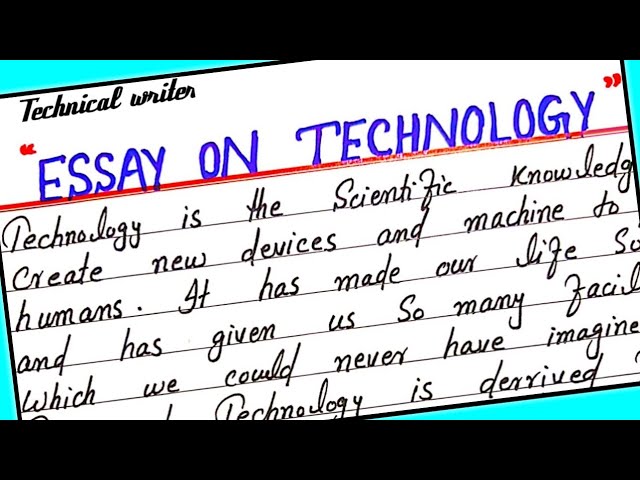 Technical writer
“ESSAY ON TECHNOLOGY”
Technology is the Scientific Knowledg
create new devices and machine to
humans. It has made our life So
and has given us So many facil
which we could never have imagine
Technology is derrived